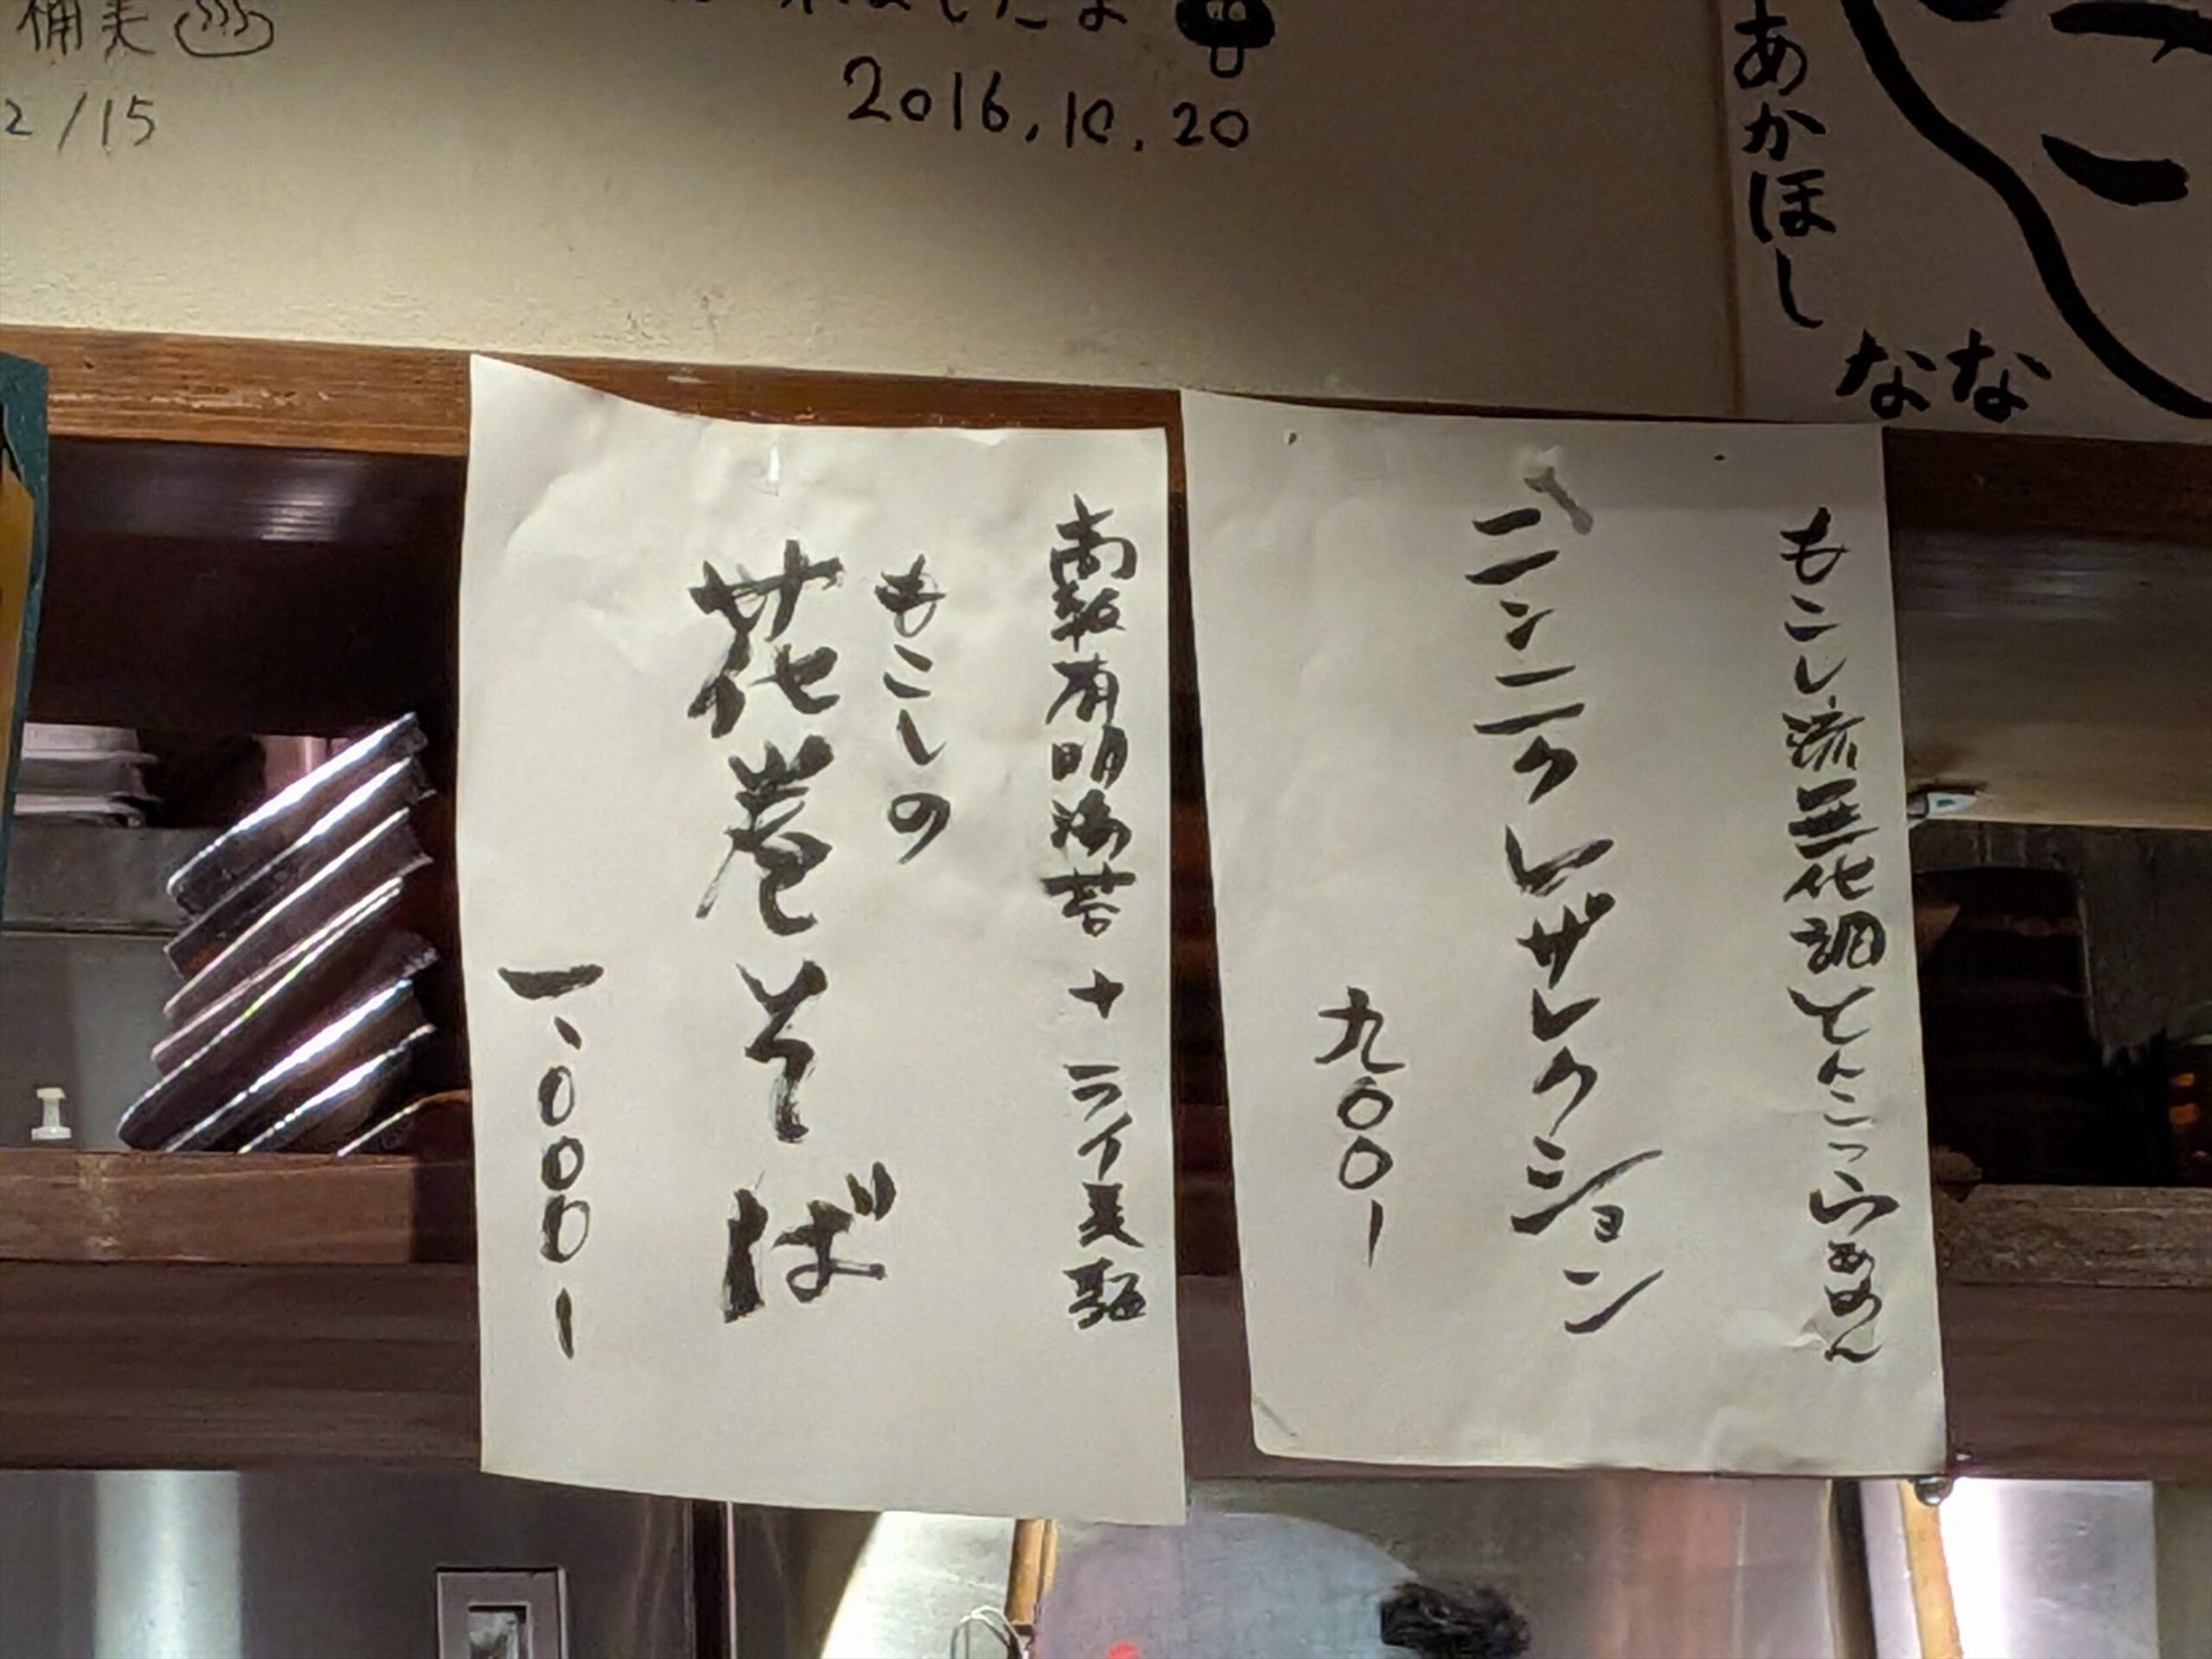 2/15
2016.10.20
あかほし
なな
もこし流無化調とんこつらあめん
ニンニクレザレクション
九〇〇ー
有明海苔+ライ麦麺
もこしの
花巻そば
一、〇〇〇ー